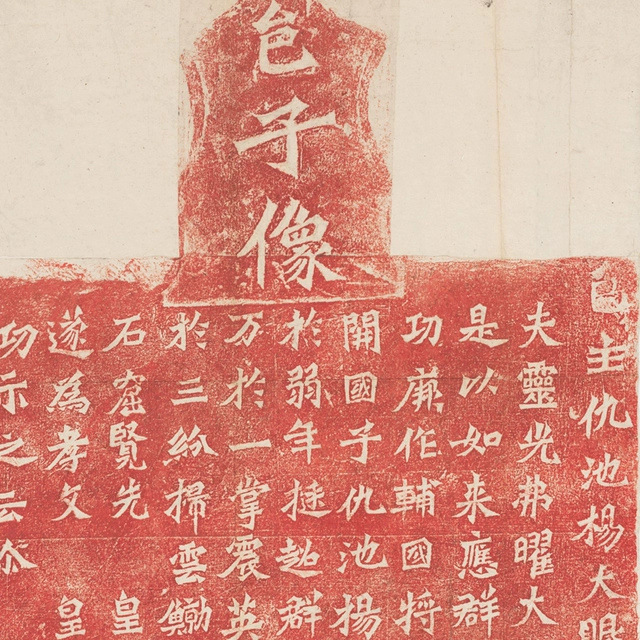 邑子像
邑主仇池楊大眼
夫靈光弗曜大
是以如来應群
功厤作輔國將
開國子仇池楊
於弱年挺超群
万於一掌震英
於三紛掃雲鯨
石窟覽先皇
遂為孝文皇
功示之云尒